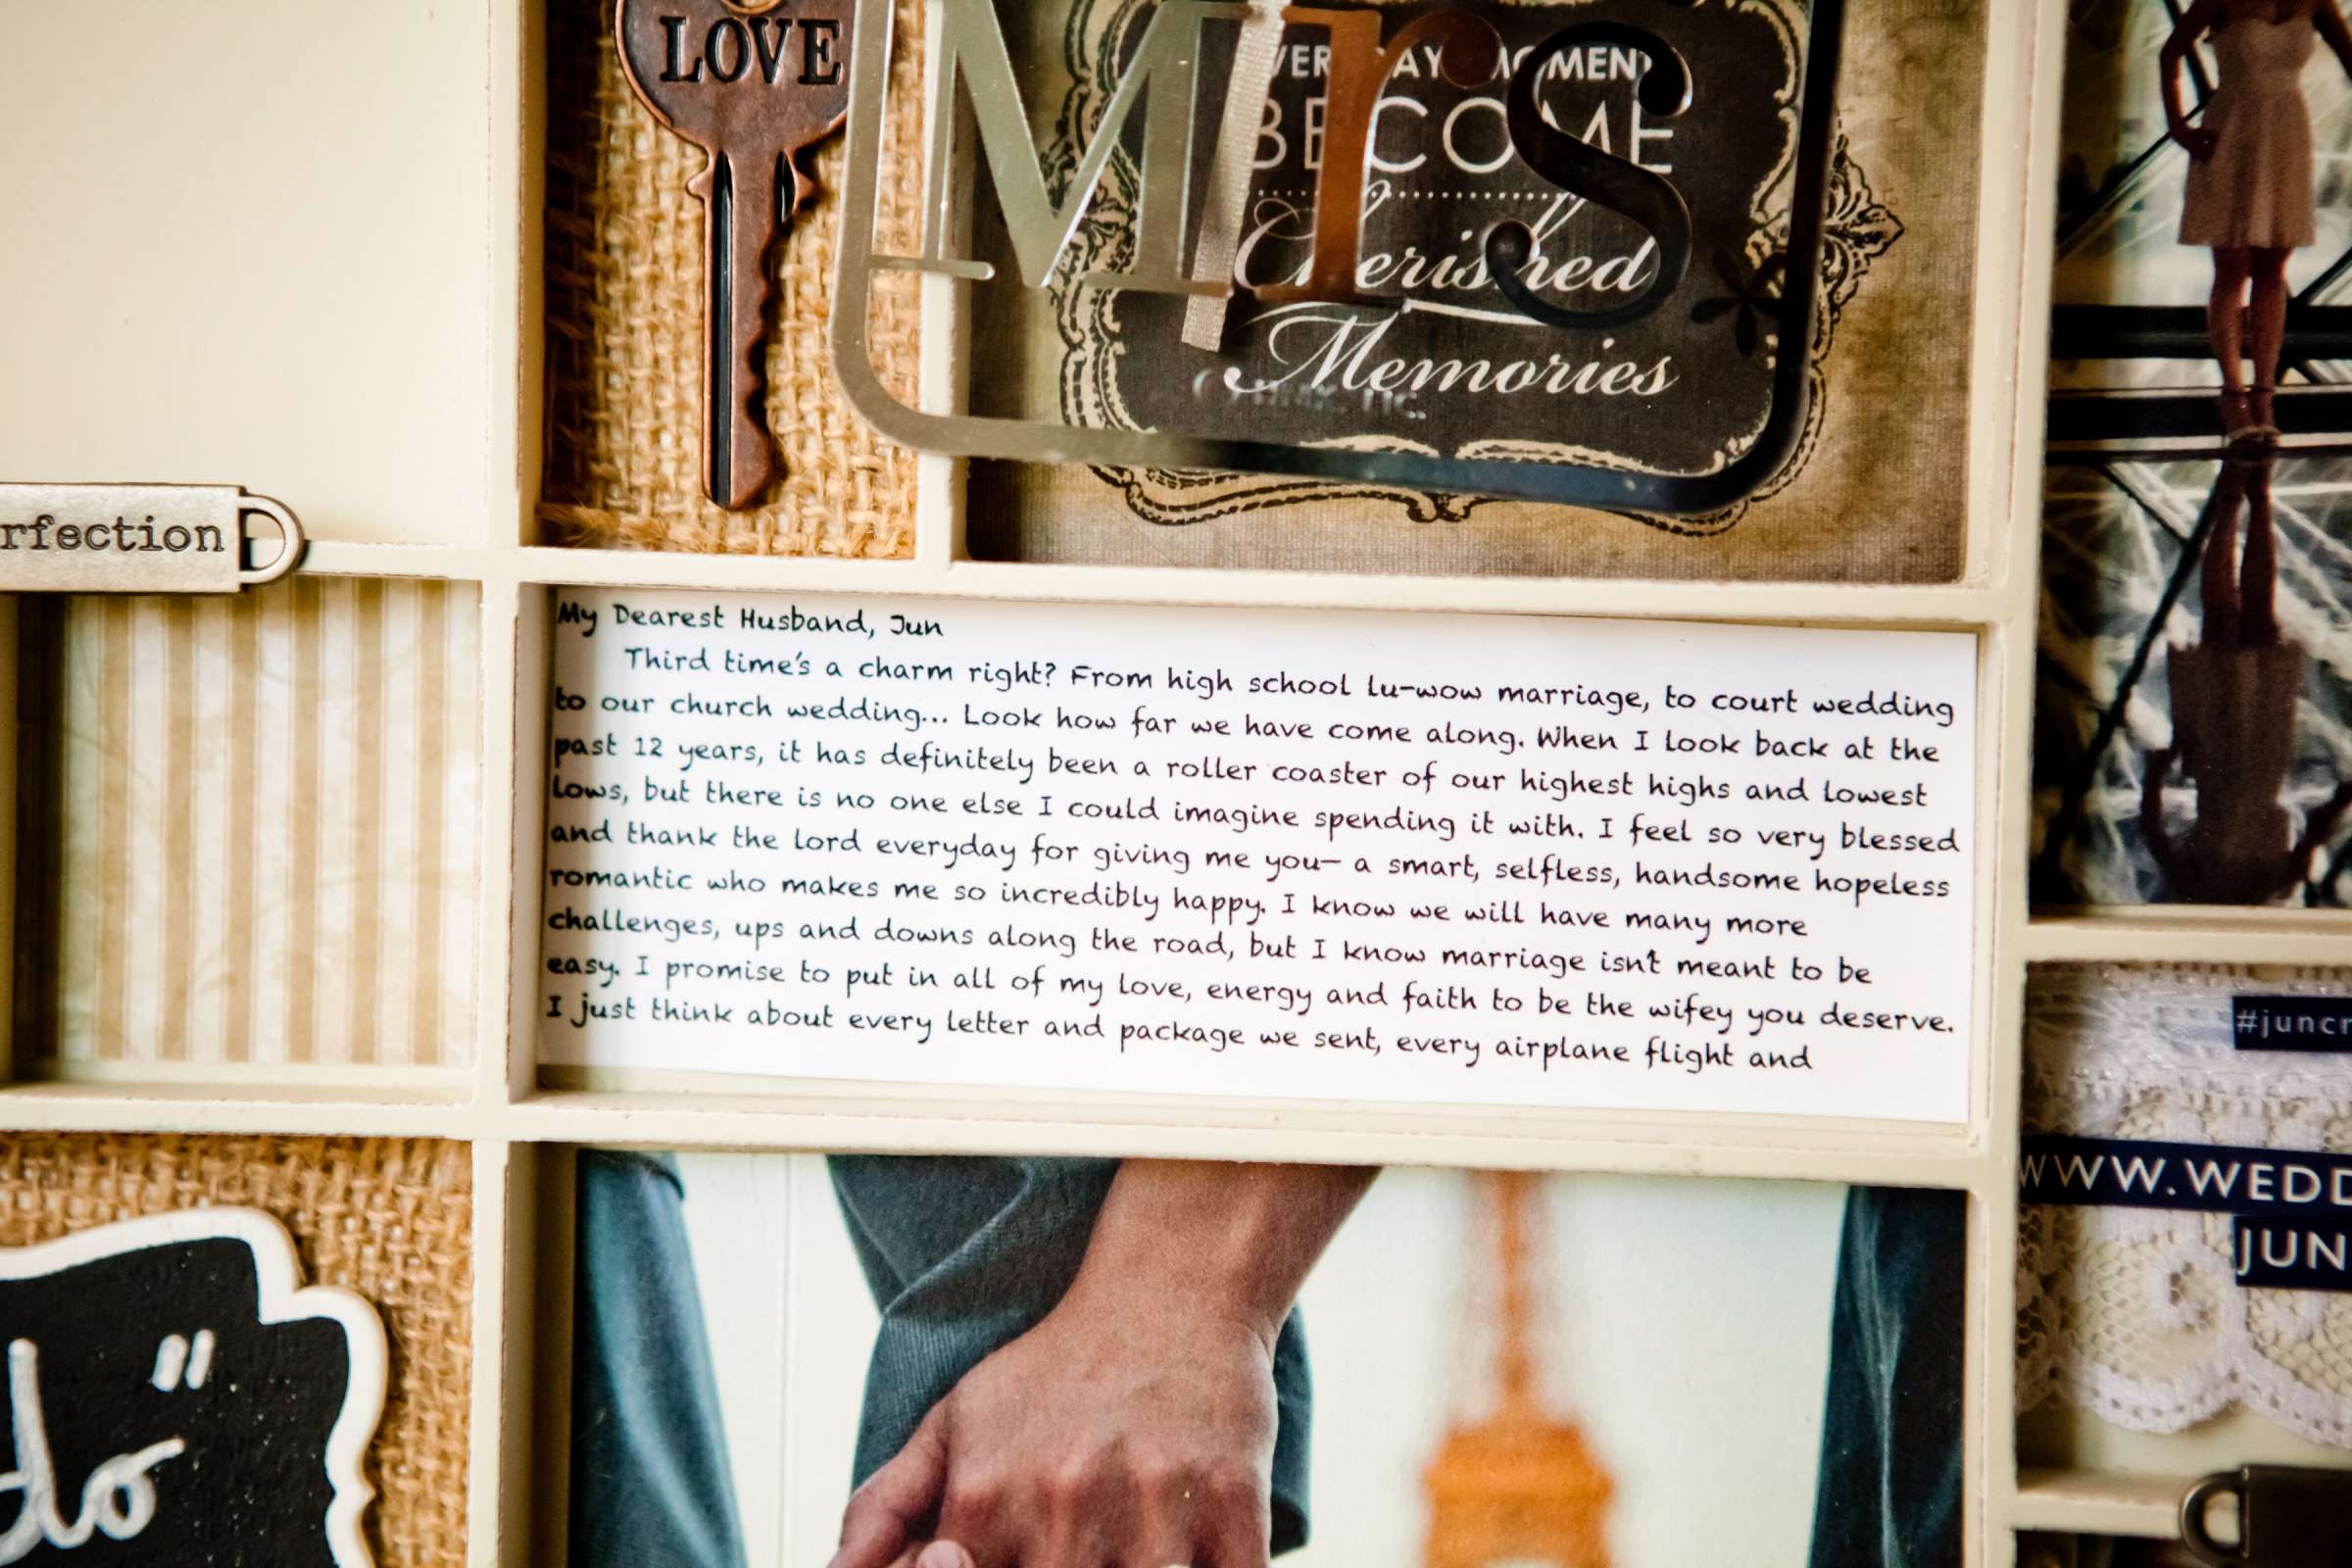 LOVE
Mrs
BECOME
Cherished
Memories
rfection
My Dearest Husband, Jun
Third time's a charm right? From high school lu-wow marriage, to court wedding
to our church wedding... Look how far we have come along. When I look back at the
past 12 years, it has definitely been a roller coaster of our highest highs and lowest
lows, but there is no one else I could imagine spending it with. I feel so very blessed
and thank the lord everyday for giving me you— a smart, selfless, handsome hopeless
romantic who makes me so incredibly happy. I know we will have many more
challenges, ups and downs along the road, but I know marriage isn't meant to be
easy. I promise to put in all of my love, energy and faith to be the wifey you deserve.
I just think about every letter and package we sent, every airplane flight and
#juncr
WWW.WEDD
JUN
do"